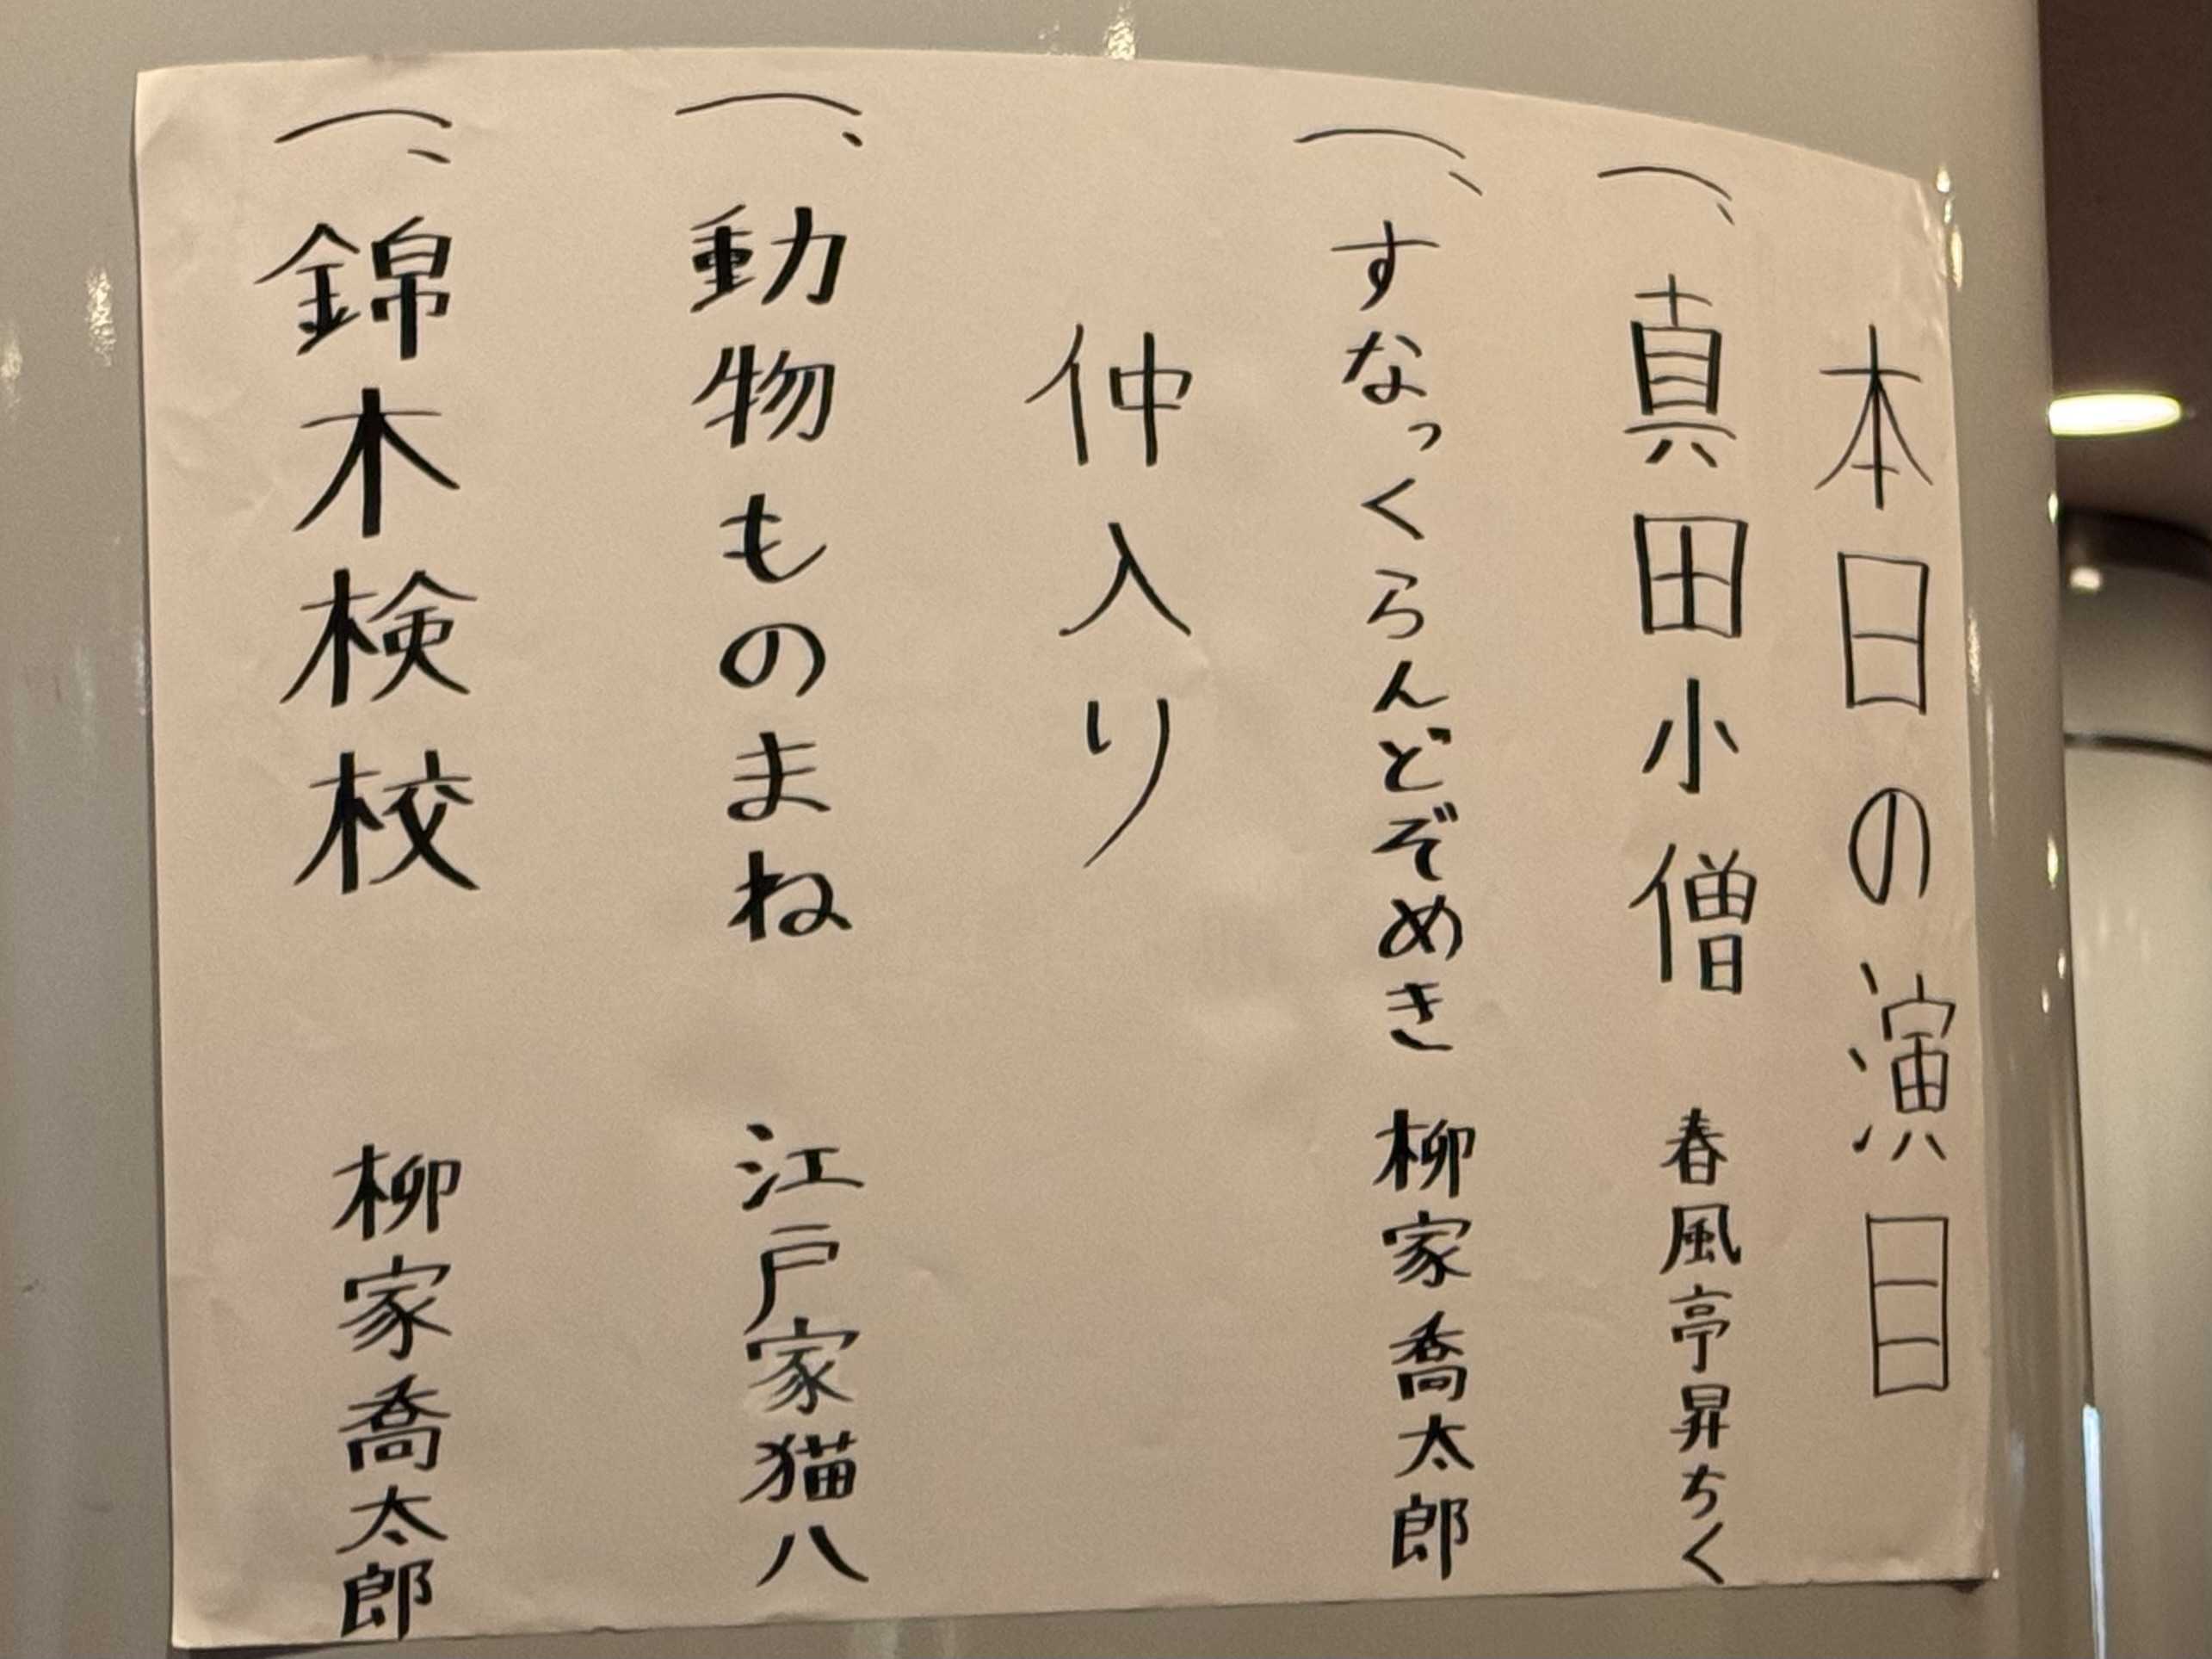 本日の演目
一、真田小僧 春風亭昇ちく
一、すなっくらんどぞめき 柳家喬太郎
仲入り
一、動物ものまね 江戸家猫八
一、錦木検校 柳家喬太郎